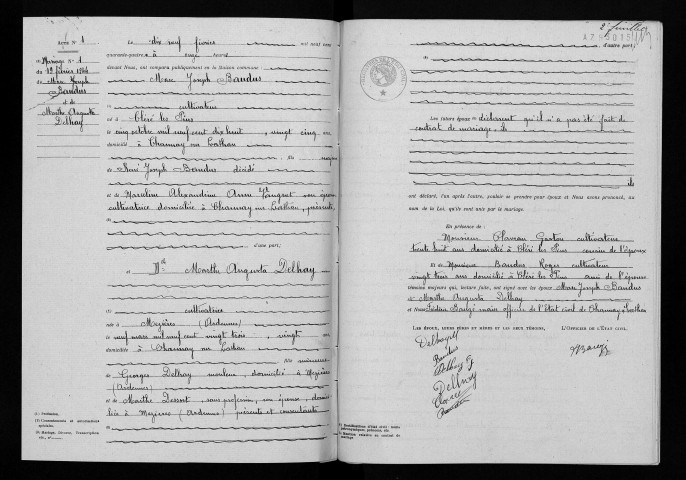 Acte N° 1
Mariage N° 1
du 19 février 1944
Marc Joseph
Baudus
et de
Marthe Augusta
Delhay
Le dix neuf février mil neuf cent
quarante-quatre à onze heures
devant Nous, ont comparu publiquement en la Maison commune :
Marc Joseph Baudus
cultivateur
né à Cléré les Pins
le cinq octobre mil neuf cent dix huit, vingt cinq ans
domicilié à Channay sur Lathan
fils majeur
de René Joseph Baudus décédé
et de Marceline Alexandrine Anne son épouse
cultivatrice domiciliée à Channay sur Lathan, présente,
d'une part;
Et Marthe Augusta Delhay
cultivatrice
née à Mézières (Ardennes)
le neuf mars mil neuf cent vingt trois, vingt ans
domiciliée à Channay sur Lathan
fille mineure
de Georges Delhay mouleur, domicilié à Mézières
(Ardennes)
et de Marthe Dessort, sans profession, son épouse, domici
liée à Mézières (Ardennes) présents et consentants
(1) Profession.
(2) Consentements et autorisations
spéciales.
(3) Mariage, Divorce, Transcription,
etc.
2e feuillet
d'autre part;
Les futurs époux déclarent qu'il n'a pas été fait de
contrat de mariage. Ils
ils
ont déclaré, l'un après l'autre, vouloir se prendre pour époux et Nous avons prononcé, au
nom de la Loi, qu'ils sont unis par le mariage.
En présence de
Monsieur Gaston cultivateur
trente huit ans domicilié à Cléré les Pins cousin de l'époux
Et de Monsieur Baudus Roger cultivateur
vingt trois ans domicilié à Cléré les Pins ami de l'épouse
témoins majeurs qui, lecture faite, ont signé avec les époux Marc Joseph Baudus
et Marthe Augusta Delhay
et Nous maire officier de l'Etat civil de Channay s/Lathan
LES ÉPOUX, LEURS PÈRES ET MÈRES ET LES DEUX TÉMOINS,
L'OFFICIER DE L'ÉTAT CIVIL,
Baudus
Delhay G
Delhay